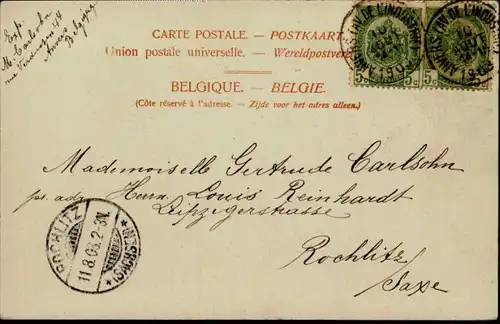 Exp.
M. Carlsohn
Anvers
Belgique
CARTE POSTALE. — POSTKAART.
Union postale universelle. — Wereldpostver
BELGIQUE. — BELGIE.
(Côté réservé à l'adresse. — Zijde voor het adres alleen.)
5c 5c 5c
Mademoiselle Gertrude Carlsohn
ps. adr. Herrn Louis Reinhardt
Leipzigerstrasse
Rochlitz
Saxe
ROCHLITZ
11.8.03.2-3N.
*(SACHSEN)*